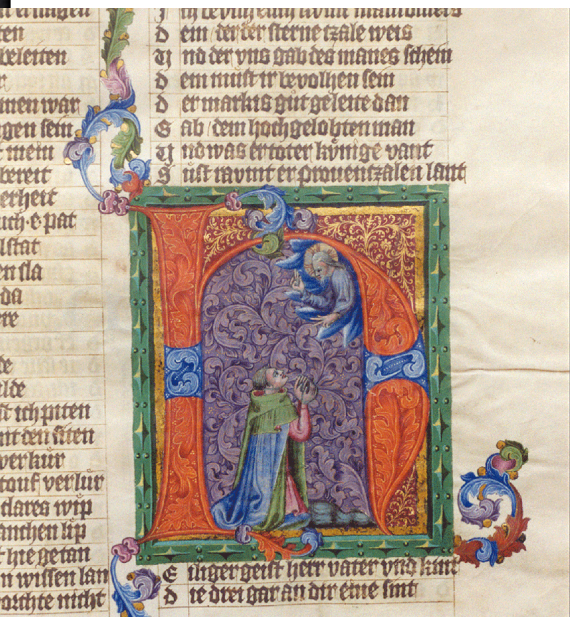 ten
beleiten
r
nnen war
gen sein
t mein
bereit
erheit
uch e pat
lstat
en sla
da
ere
de
elde
st ich piten
nt den siten
verkür
touf verlür
clares wip
anchen lip
t hie getan
n wissen lan
vorchte nicht
D em der der sterne tzale weis
U nd der vns gab des manes schein
D em müst ir bevolhen sein
D er markis güt geleite dan
G ab dem hochgelobten man
U nd was er toter künige vant
S üst ravmt er provenzalen lant
H
E iliger geist herr vater vnd kint
D ie drei gar an dir eine sint